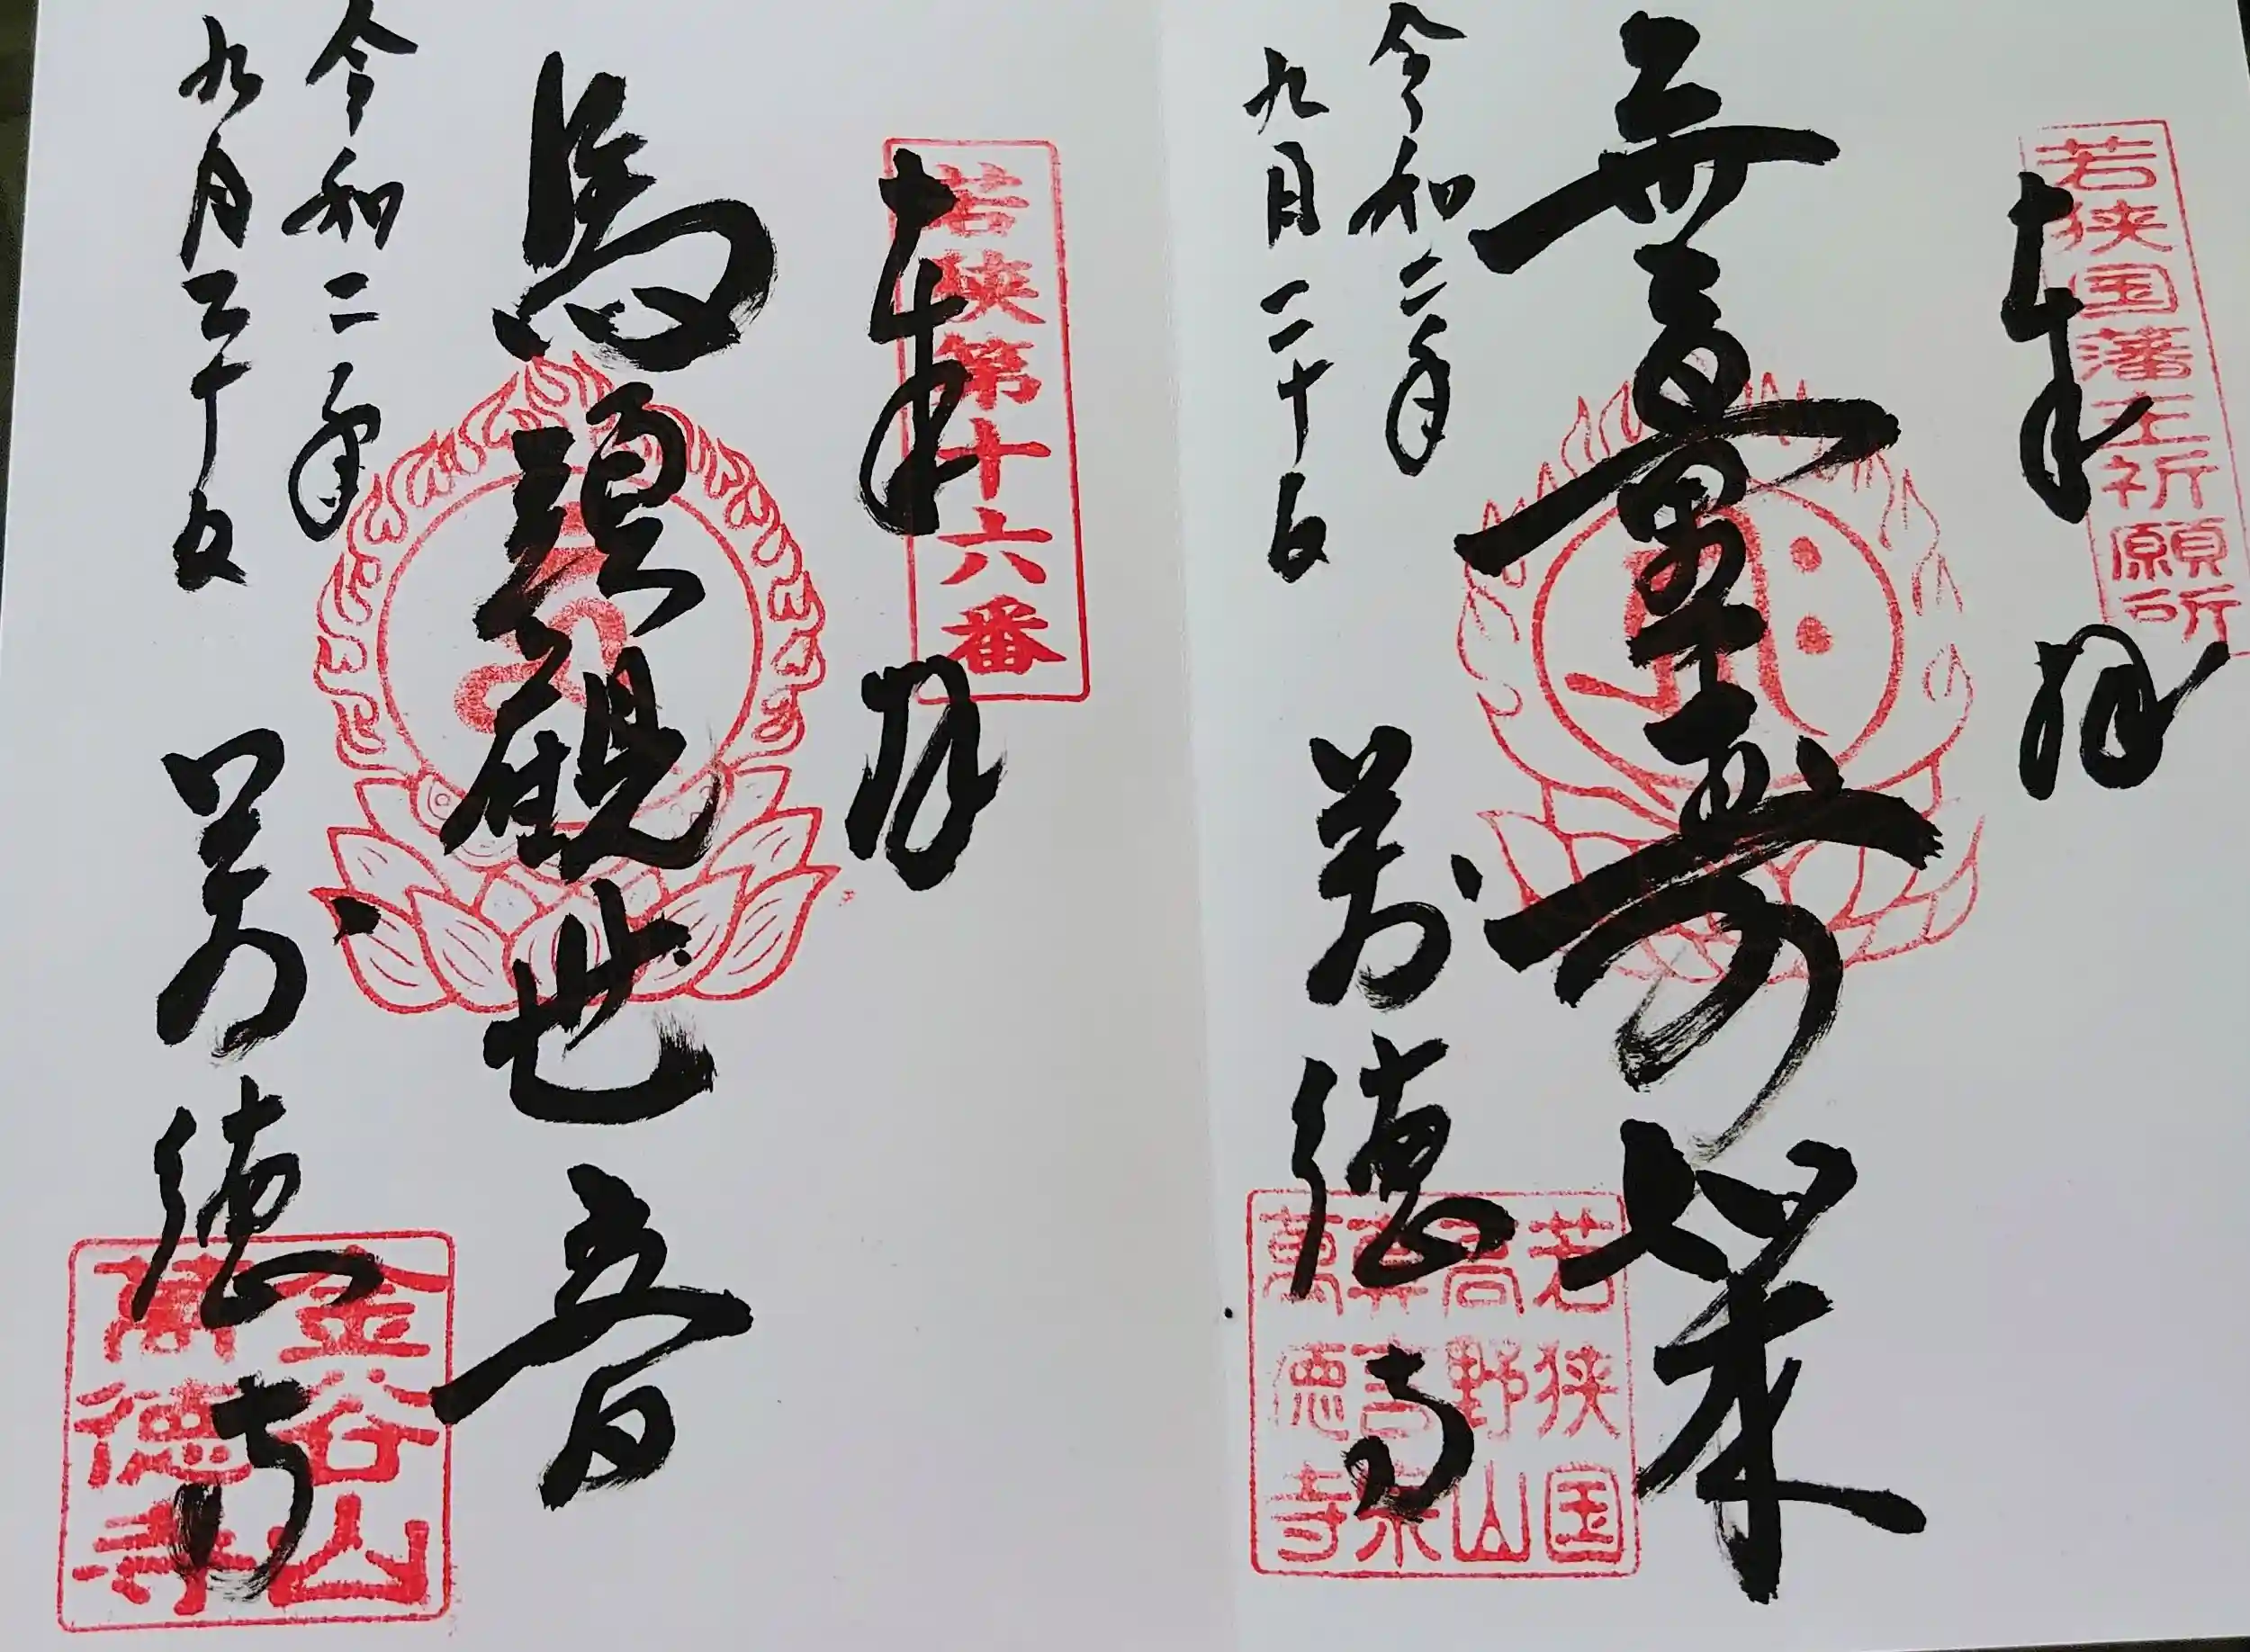 若狭国藩主祈願所
奉拝
無量寿如来
令和二年
九月二十日
萬徳寺
若狭国
高野山
真言宗
萬德寺
若狭第十六番
奉拝
馬頭観世音
令和二年
九月二十日
萬徳寺
金谷山
萬德寺